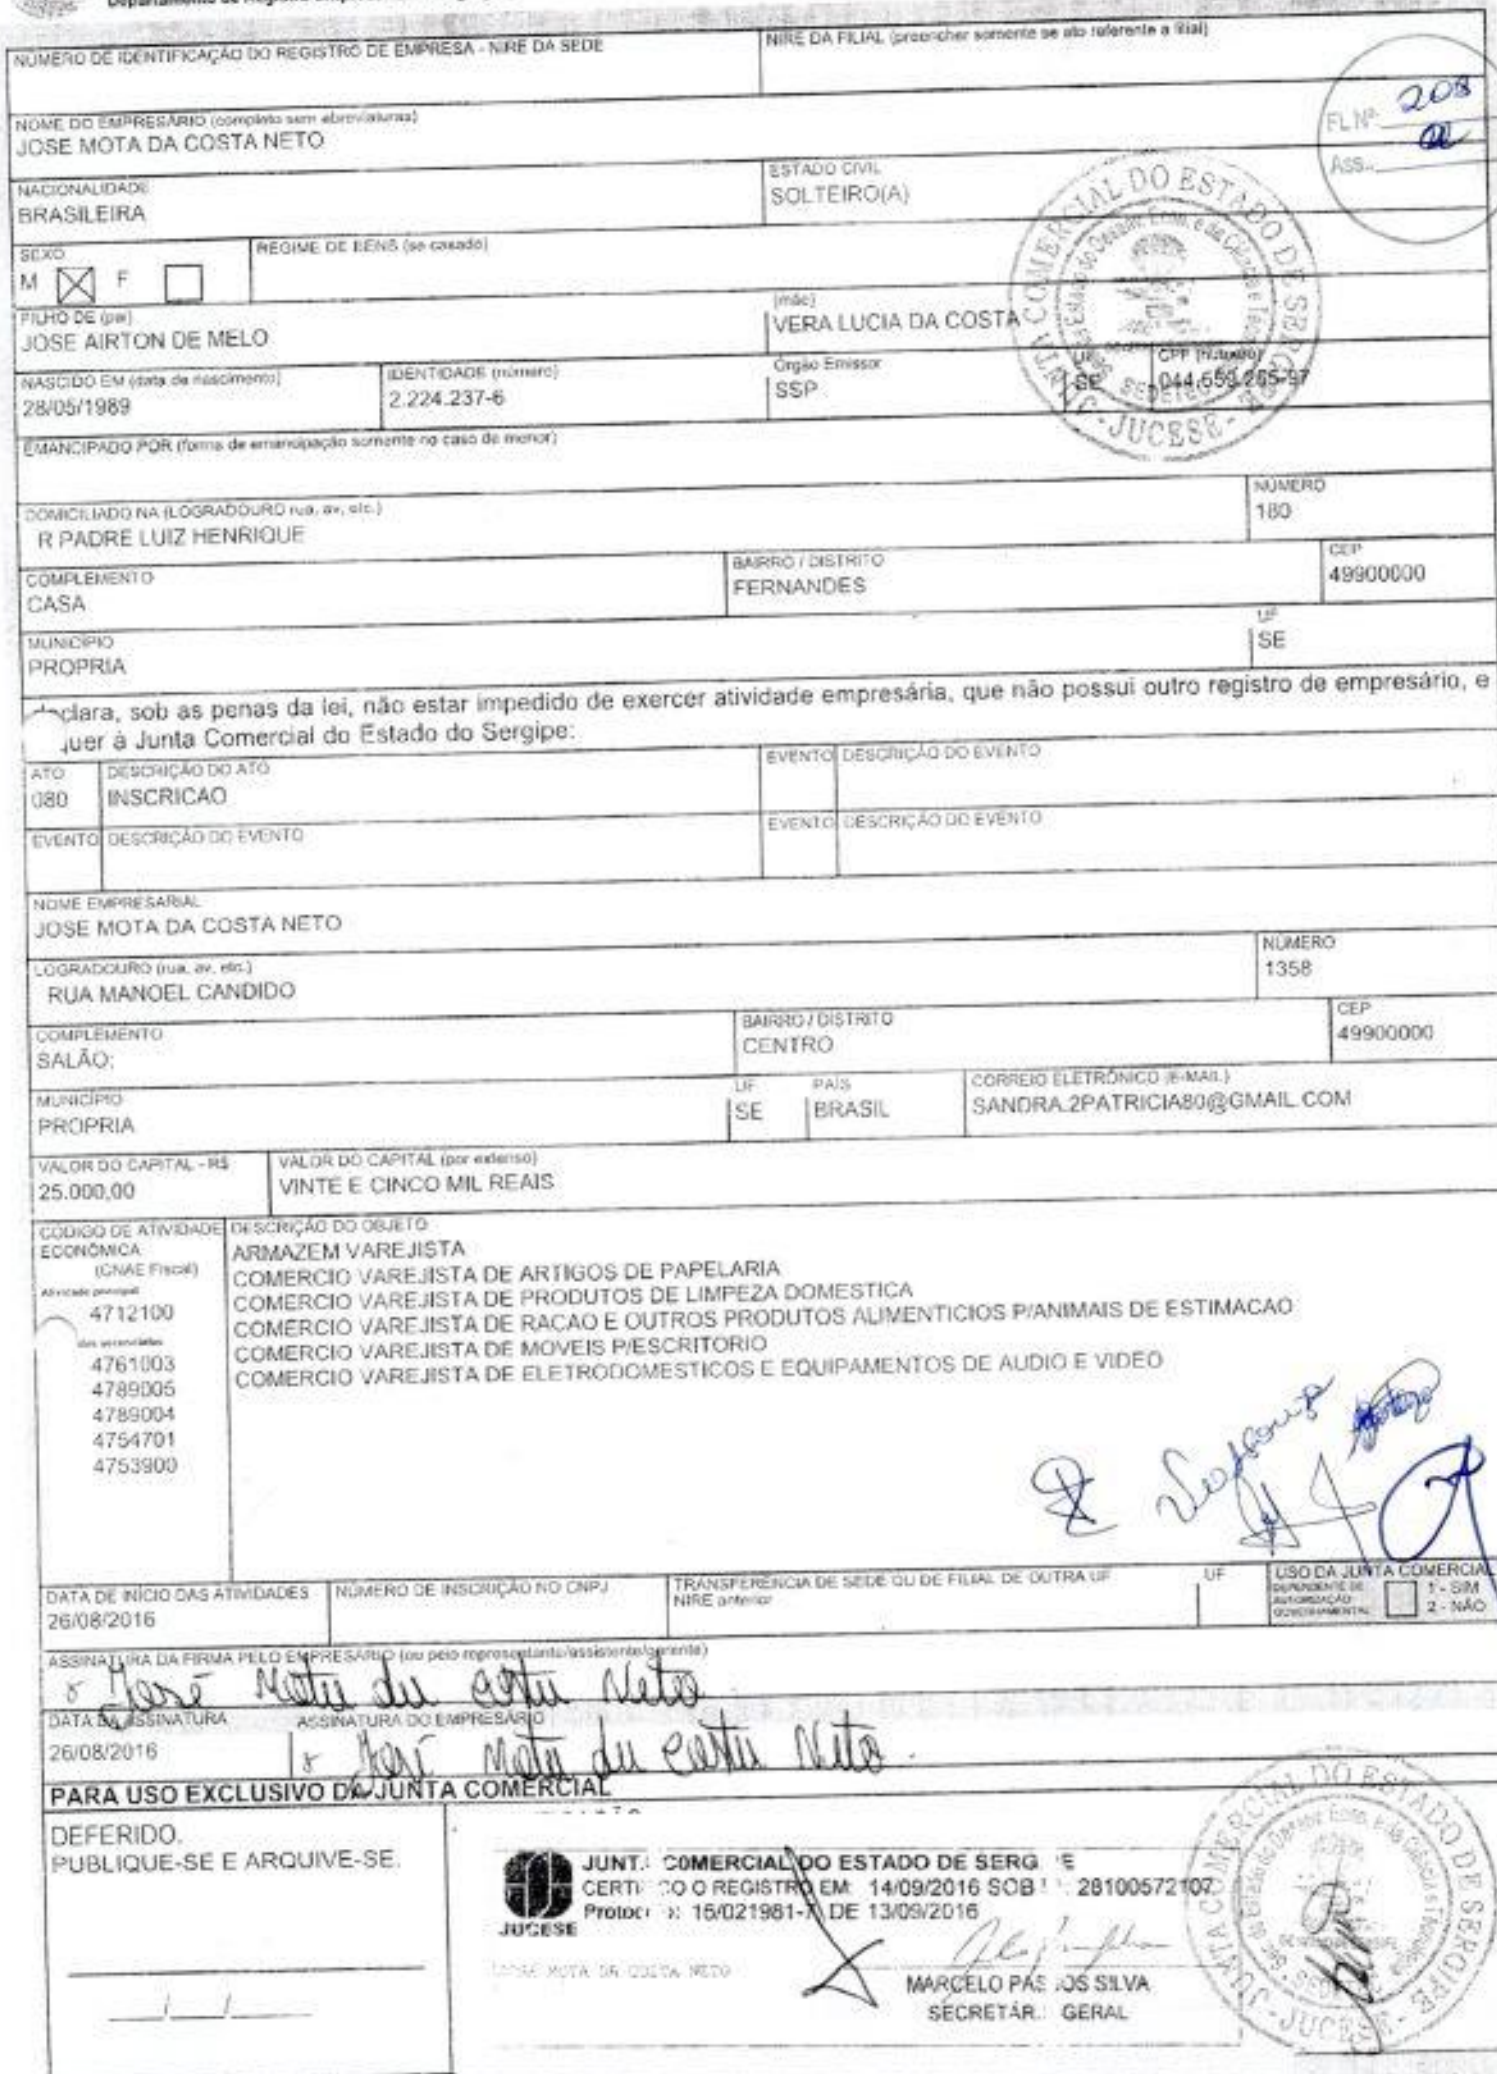 NÚMERO DE IDENTIFICAÇÃO DO REGISTRO DE EMPRESA - NIRE DA SEDE
NIRE DA FILIAL (preencher somente se ato referente a filial)
FL Nº 208
Ass.
NOME DO EMPRESÁRIO (completo sem abreviaturas)
JOSE MOTA DA COSTA NETO
NACIONALIDADE
BRASILEIRA
ESTADO CIVIL
SOLTEIRO(A)
SEXO
M F
REGIME DE BENS (se casado)
FILHO DE (pai)
JOSE AIRTON DE MELO
(mãe)
VERA LUCIA DA COSTA
NASCIDO EM (data de nascimento)
28/05/1989
IDENTIDADE (número)
2.224.237-6
Órgão Emissor
SSP
UF
SE
CPF (número)
044.659.265-97
JUNTA COMERCIAL DO ESTADO DE SERGIPE
- JUCESE -
EMANCIPADO POR (forma de emancipação somente no caso de menor)
DOMICILIADO NA (LOGRADOURO rua, av, etc.)
R PADRE LUIZ HENRIQUE
NÚMERO
180
COMPLEMENTO
CASA
BAIRRO / DISTRITO
FERNANDES
CEP
49900000
MUNICÍPIO
PROPRIA
UF
SE
clara, sob as penas da lei, não estar impedido de exercer atividade empresária, que não possui outro registro de empresário, e
uer à Junta Comercial do Estado do Sergipe:
ATO
080
DESCRIÇÃO DO ATO
INSCRICAO
EVENTO DESCRIÇÃO DO EVENTO
EVENTO DESCRIÇÃO DO EVENTO
EVENTO DESCRIÇÃO DO EVENTO
NOME EMPRESARIAL
JOSE MOTA DA COSTA NETO
LOGRADOURO (rua, av, etc.)
RUA MANOEL CANDIDO
NÚMERO
1358
COMPLEMENTO
SALÃO;
BAIRRO / DISTRITO
CENTRO
CEP
49900000
MUNICÍPIO
PROPRIA
UF
SE
PAÍS
BRASIL
CORREIO ELETRÔNICO (E-MAIL)
SANDRA.2PATRICIA80@GMAIL.COM
VALOR DO CAPITAL - R$
25.000,00
VALOR DO CAPITAL (por extenso)
VINTE E CINCO MIL REAIS
CÓDIGO DE ATIVIDADE
ECONÔMICA
(CNAE Fiscal)
Atividade principal
4712100
4761003
4789005
4789004
4754701
4753900
DESCRIÇÃO DO OBJETO
ARMAZEM VAREJISTA
COMERCIO VAREJISTA DE ARTIGOS DE PAPELARIA
COMERCIO VAREJISTA DE PRODUTOS DE LIMPEZA DOMESTICA
COMERCIO VAREJISTA DE RACAO E OUTROS PRODUTOS ALIMENTICIOS P/ANIMAIS DE ESTIMACAO
COMERCIO VAREJISTA DE MOVEIS P/ESCRITORIO
COMERCIO VAREJISTA DE ELETRODOMESTICOS E EQUIPAMENTOS DE AUDIO E VIDEO
DATA DE INÍCIO DAS ATIVIDADES
26/08/2016
NÚMERO DE INSCRIÇÃO NO CNPJ
TRANSFERÊNCIA DE SEDE OU DE FILIAL DE OUTRA UF
NIRE anterior
UF
USO DA JUNTA COMERCIAL
DEPENDENTE DE
AUTORIZAÇÃO
GOVERNAMENTAL
1 - SIM
2 - NÃO
ASSINATURA DA FIRMA PELO EMPRESÁRIO (ou pelo representante/assistente/gerente)
José Mota da Costa Neto
DATA DA ASSINATURA
26/08/2016
ASSINATURA DO EMPRESÁRIO
José Mota da Costa Neto.
PARA USO EXCLUSIVO DA JUNTA COMERCIAL
DEFERIDO.
PUBLIQUE-SE E ARQUIVE-SE.
JUCESE
JUNT. COMERCIAL DO ESTADO DE SERG E
CERTI CO O REGISTRO EM: 14/09/2016 SOB : 28100572107
DE 13/09/2016
JOSE MOTA DA COSTA NETO
MARCELO PAS OS SILVA
SECRETÁR. GERAL
JUNTA COMERCIAL DO ESTADO DE SERGIPE
- JUCESE -